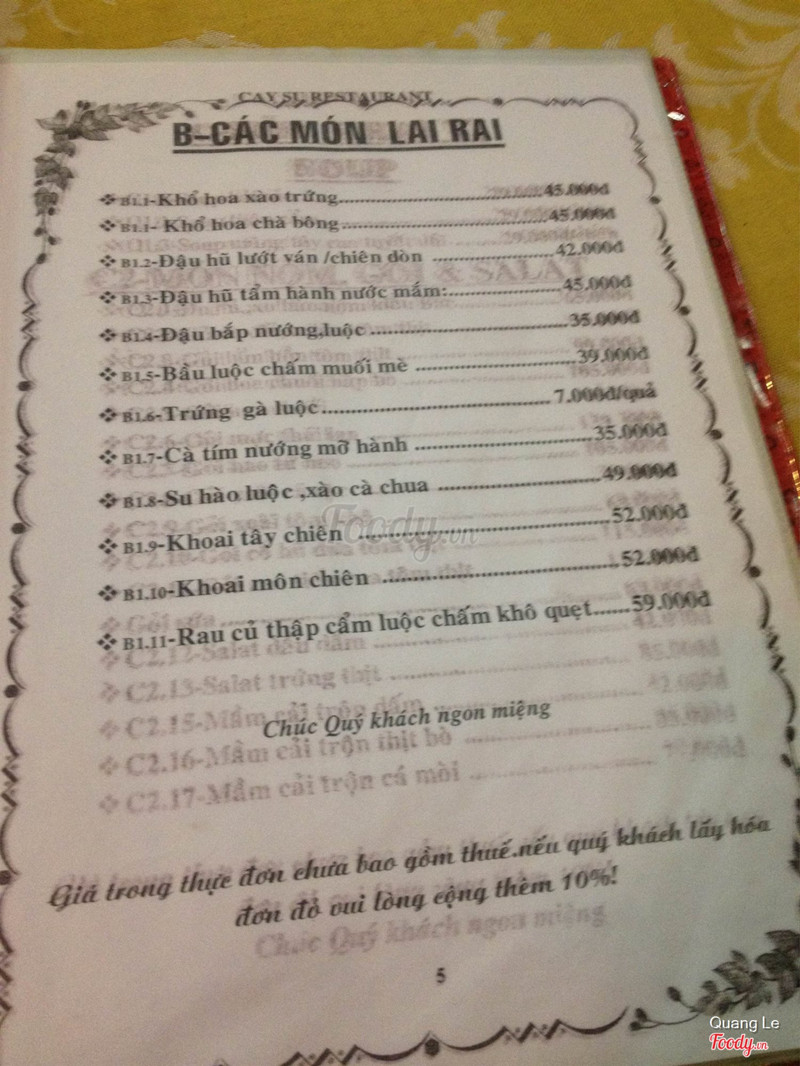 CAY SU RESTAURANT
B-CÁC MÓN LAI RAI
SOUP
❖ B1.1-Khổ hoa xào trứng....................45.000đ
❖ B1.1- Khổ hoa chà bông....................45.000đ
❖ B1.2-Đậu hũ lướt ván /chiên dòn ....................42.000đ
❖ B1.3-Đậu hũ tẩm hành nước mắm:....................45.000đ
❖ B1.4-Đậu bắp nướng,luộc ....................35.000đ
❖ B1.5-Bầu luộc chấm muối mè ....................39.000đ
❖ B1.6-Trứng gà luộc....................7.000đ/quả
❖ B1.7-Cà tím nướng mỡ hành ....................35.000đ
❖ B1.8-Su hào luộc ,xào cà chua ....................49.000đ
❖ B1.9-Khoai tây chiên ....................52.000đ
❖ B1.10-Khoai môn chiên ....................52.000đ
❖ B1.11-Rau củ thập cẩm luộc chấm khô quẹt......59.000đ
❖ C2.13-Salat trứng thịt
Chúc Quý khách ngon miệng
❖ C2.16-Mầm cải trộn thịt bò
❖ C2.17-Mầm cải trộn cá mòi
Giá trong thực đơn chưa bao gồm thuế.nếu quý khách lấy hóa
đơn đỏ vui lòng cộng thêm 10%!
Chúc Quý khách ngon miệng
5
Foody.vn
Quang Le
Foody.vn